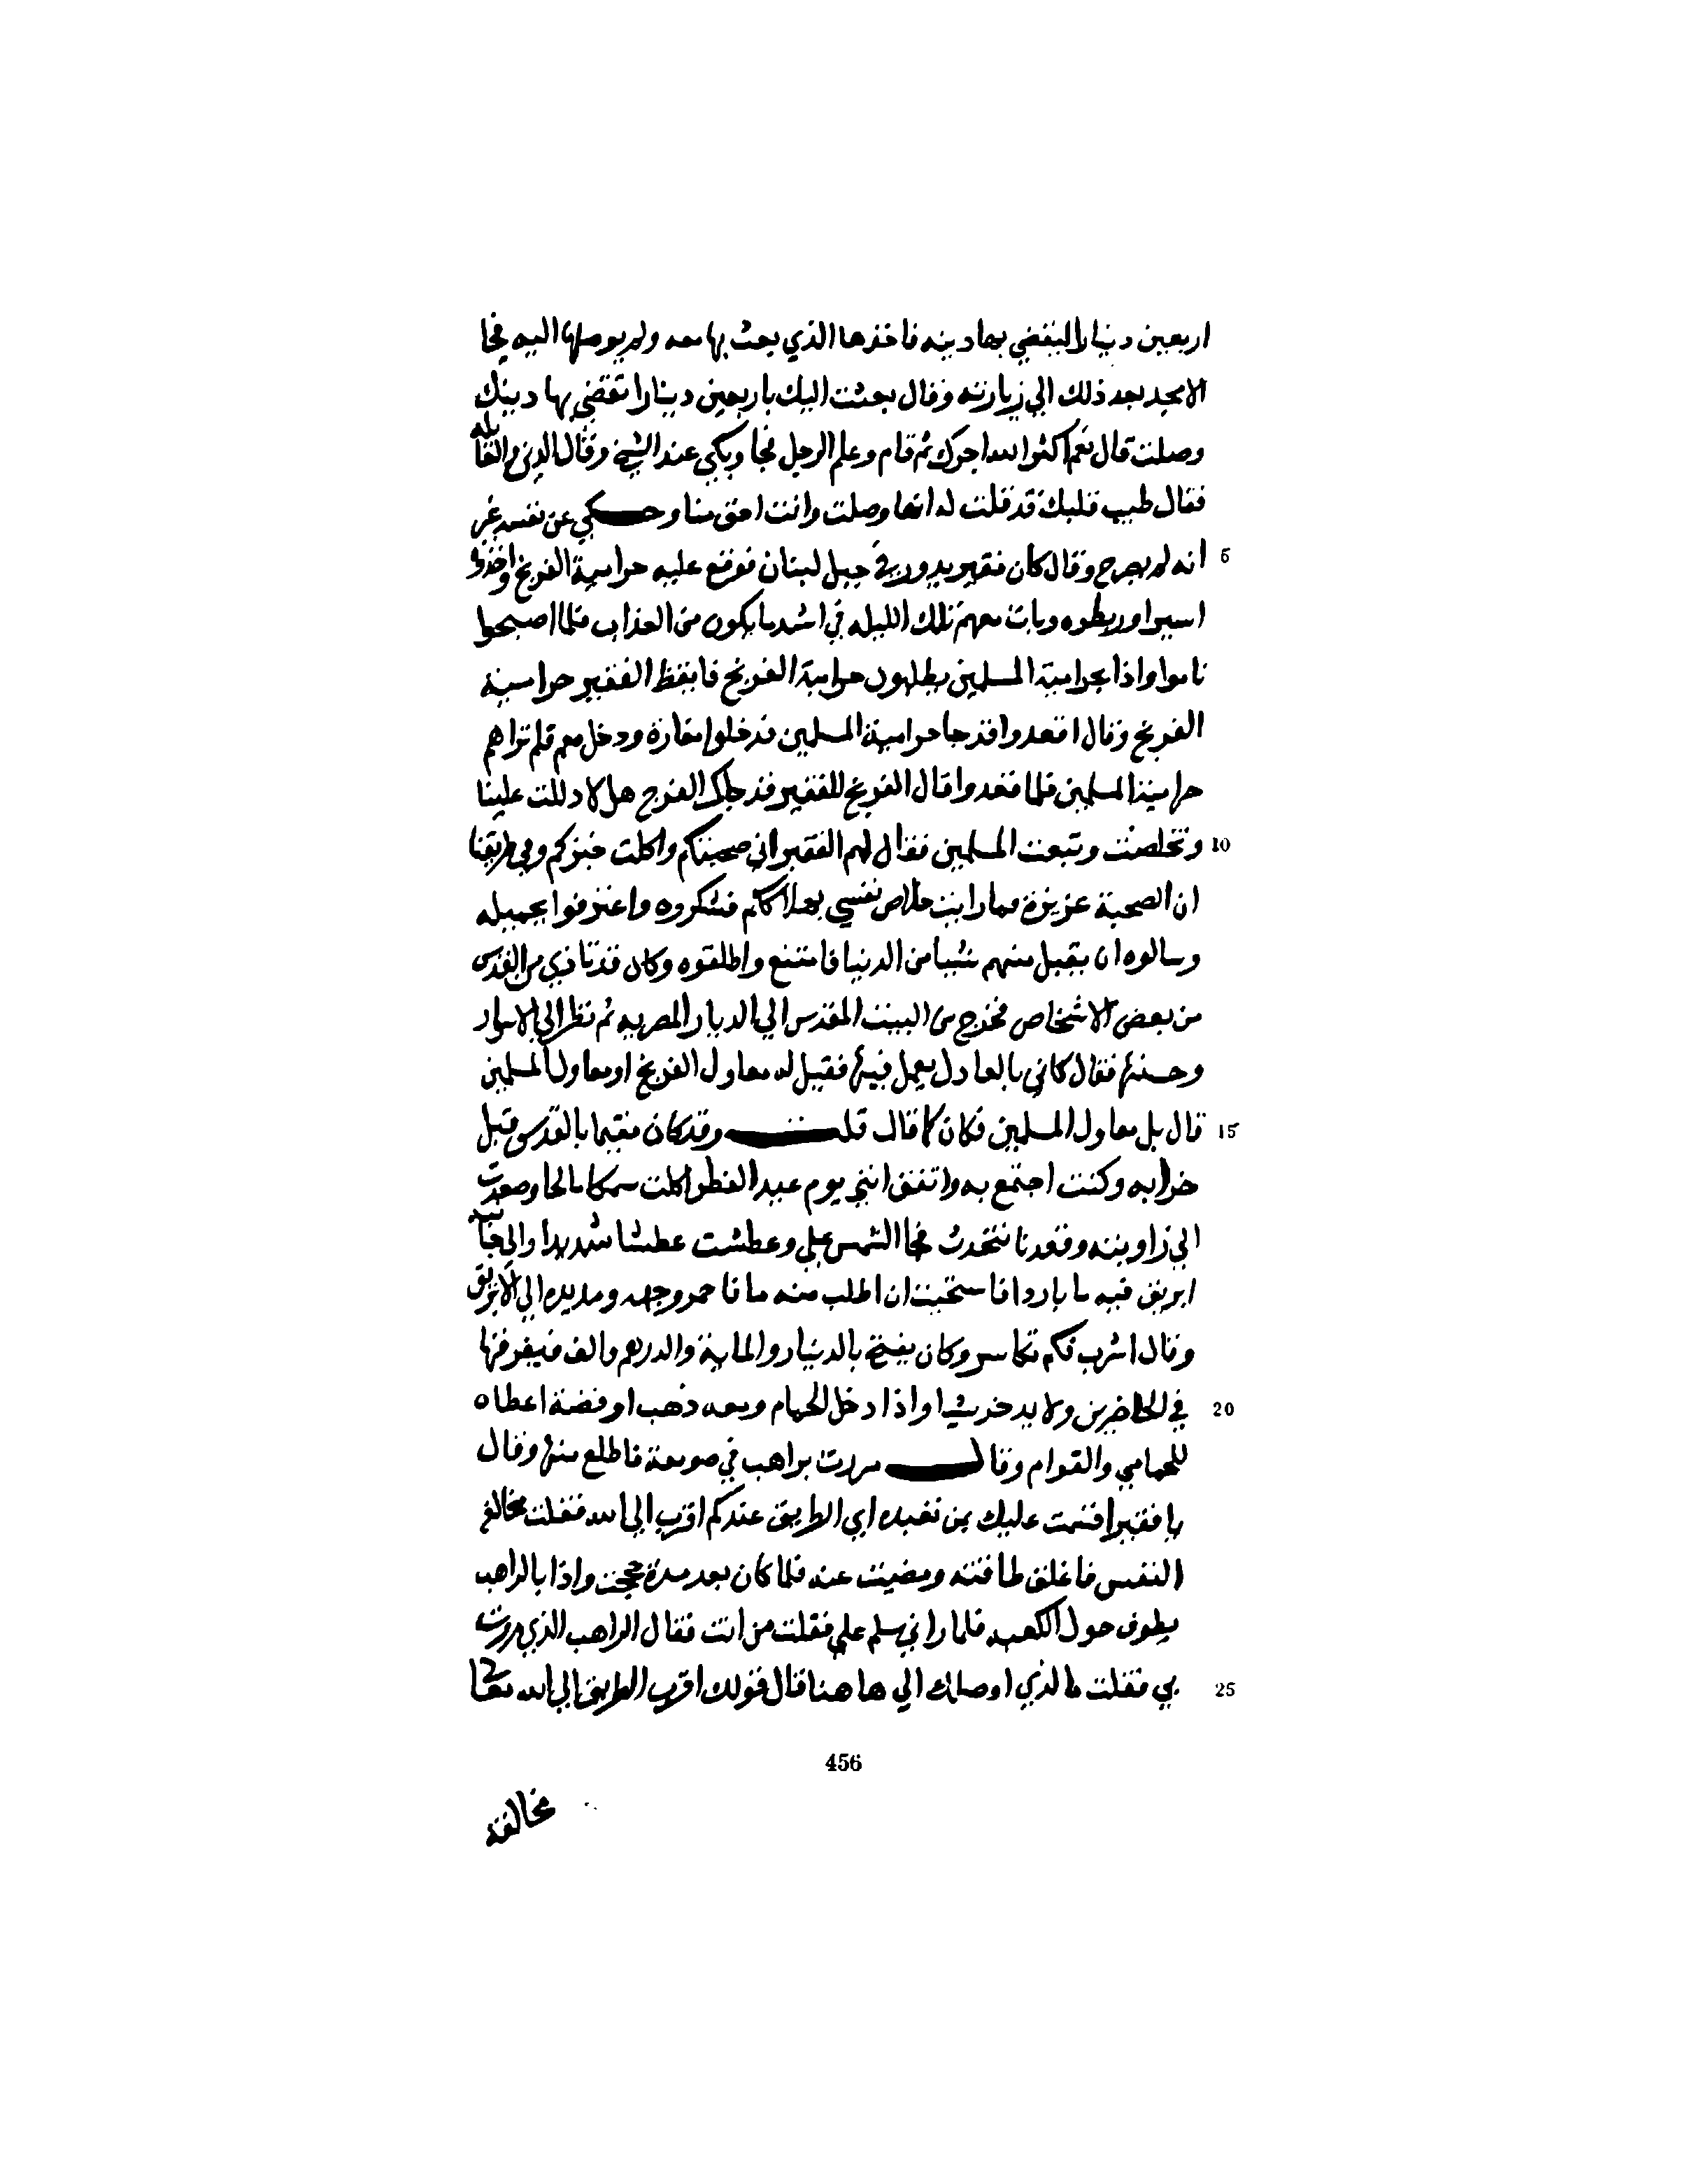 اربعين دينارا ليقضي بها دينه فاخذها الذي بعث بها معه ولم يوصلها اليه فجا
الامجد بعد ذلك الي زيارته وقال بعثت اليك باربعين دينارا تقضي بها دينك
وصلت قال نعم اكثر الله اجرك ثم قام وعلم الرجل فجا وبكي عند الشيخ وقال
فقال طيب قلبك قد قلت له انها وصلت وانت احق منا وحكي عن نفسه غير
5 انه لم يصرح وقال كان فقير يدور في جبل لبنان فوقع عليه حرامية الفرنج واخذوه
اسيرا وربطوه وبات معهم تلك الليله في اشد ما يكون من العذاب فلما اصبحوا
ناموا واذا بحرامية المسلمين يطلبون حرامية الفرنج فايقظ الفقير حرامية
الفرنج وقال اقعدوا قد جا حرامية المسلمين فدخلوا مغارة ودخل معهم فلم تراهم
حرامية المسلمين فلما قعدوا قال الفرنج للفقير قد جاك الفرج هل لا دللت علينا
10 وتخلصت وتبعت المسلمين فقال لهم الفقير اني صحبتكم واكلت خبزكم وفي طريقنا
ان الصحبة عزيزة فما رايت خلاص نفسي بهلاككم فشكروه واعترفوا بجميله
وسالوه ان يقبل منهم شيبا من الدنيا فامتنع واطلقوه وكان قد تاذي من القدس
من بعض الاشخاص فخرج من البيت المقدس الي الديار المصريه ثم نظر الي الاسوار
وحسنها فقال كاني بالعادل يعمل فيها فقيل له معاول الفرنج او معاول المسلمين
15 قال بل معاول المسلمين فكان كما قال قلت وقد كان مقيما بالقدس قبل
خرابه وكنت اجتمع به واتفق انني يوم عيد الفطر اكلت سمكا مالحا وصعدت
الي زاويته وقعدنا نتحدث فجا الشمس علي وعطشت عطشا شديدا والي جانبه
ابريق فيه ما بارد فاستحيت ان اطلب منه ما فاحمر وجهه ومد يده الي الابريق
وقال اشرب فكم تكاسر وكان يفتح بالدينار والماية والدرهم والف فيفرقها
20 في الحاضرين ولا يدخر شيا واذا دخل الحمام ومعه ذهب او فضة اعطاه
للحمامي والقوام وقال مررت براهب في صومعة فاطلع منها وقال
يا فقير اقسمت عليك بمن تعبده اي الطريق عندكم اقرب الي الله فقلت مخالفة
النفس فاغلق طاقته ومضيت عنه فلما كان بعد مدة حججت واذا بالراهب
يطوف حول الكعبه فلما راني سلم علي فقلت من انت فقال الراهب الذي مررت
25 بي فقلت ما الذي اوصلك الي هاهنا قال قولك اقرب الطريق الي الله تعا
456
مخالفة